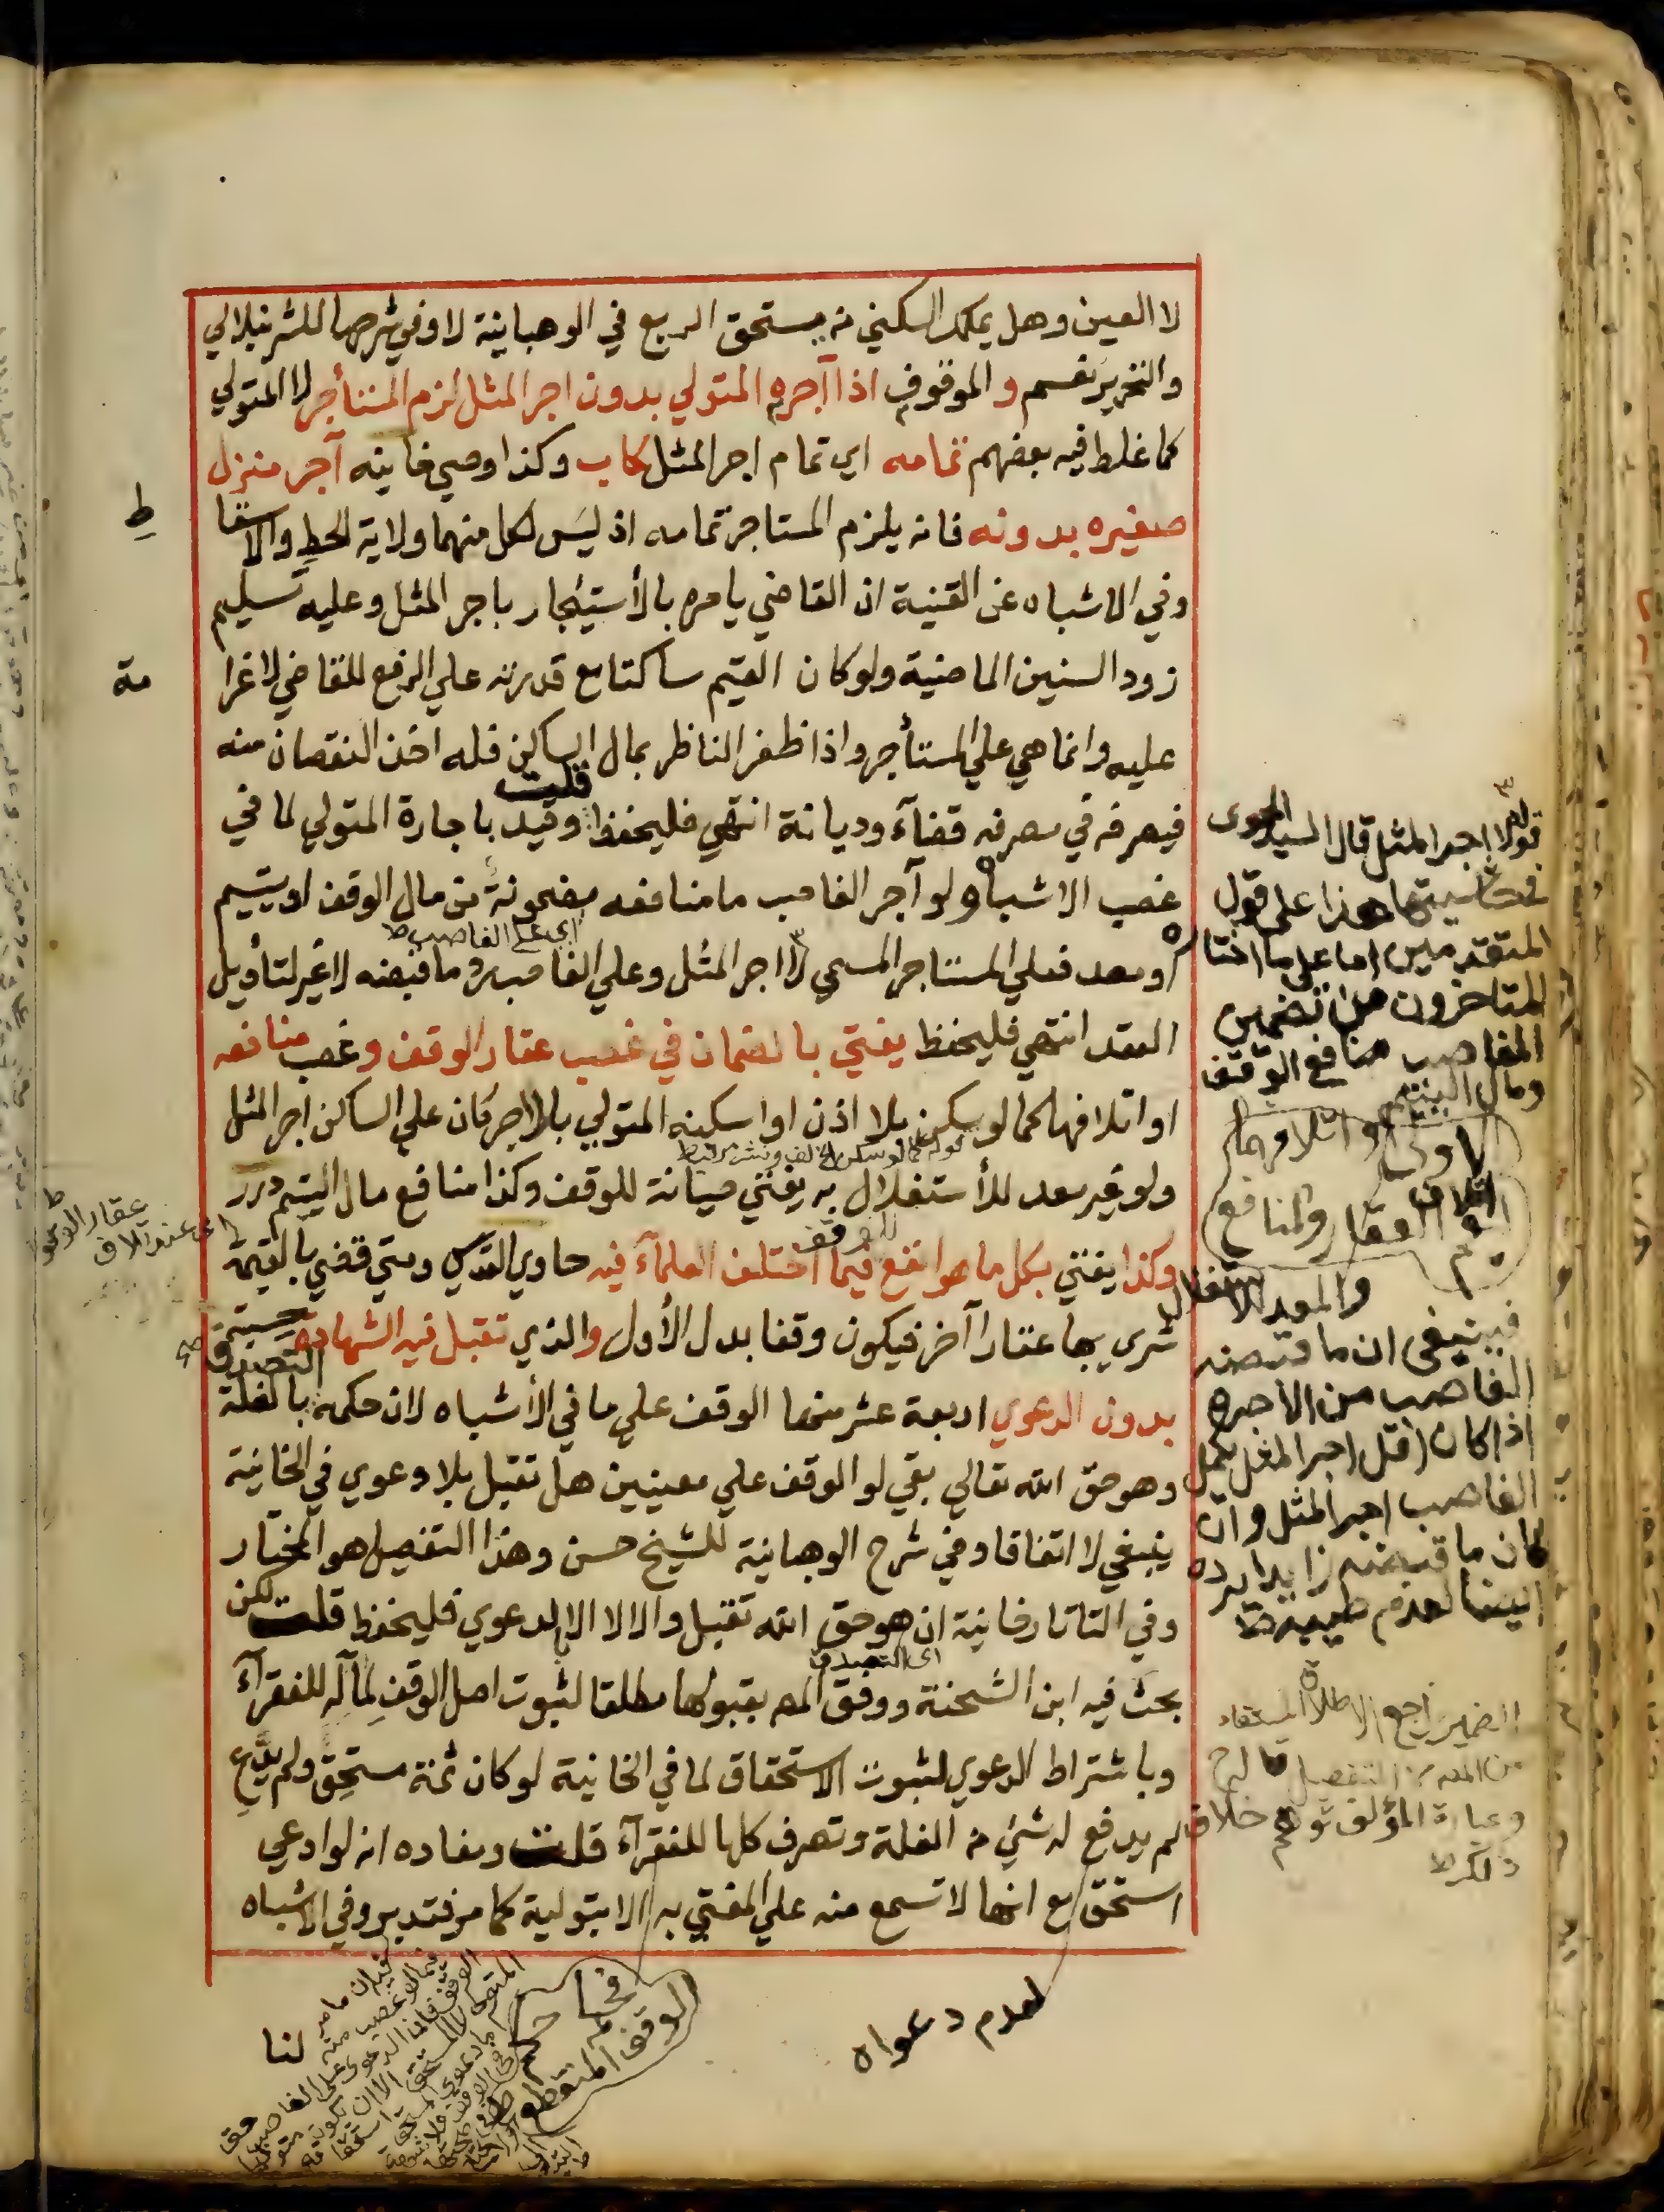 لا العين وهل يملك السكني من يستحق الريع في الوهبانية لا وفي شرحها للشرنبلالي
والتحرير نعم والموقوف اذا آجره المتولي بدون اجر المثل لزم المستأجر لا المتولي
كما غلط فيه بعضهم تمامه اي تمام اجر المثل كاب وكذا وصي خانيه آجر منزل
صغيره بدونه فانه يلزم المستاجر تمامه اذ ليس لكل منهما ولاية الحط والاسقا
ط
وفي الاشباه عن القنية ان القاضي يامره بالأستيجار باجر المثل وعليه تسليم
زود السنين الماضية ولوكان القيم ساكتا مع قدرته علي الرفع للقاضي لا غرا
مة
عليه وانما هي علي المستأجر واذا ظفر الناظر بمال الساكن فله اخذ النقصان منه
فيصرفه في مصرفه قضآء وديانة انتهي فليحفظ قلت وقيد باجارة المتولي لما في
غصب الاشباه ولو آجر الغاصب ما منافعه مضمونة من مال الوقف او يتيم
اي علي الغاصب ط
او معد فعلي المستاجر المسمي لا اجر المثل وعلي الغاصب رد ما قبضه لا غير لتأويل
العقد انتهي فليحفظ يفتي بالضمان في غصب عقار الوقف وغصب منافعه
او اتلافها كما لو سكن بلا اذن او اسكنه المتولي بلا اجر كان علي الساكن اجر المثل
ولو غير معد للأستغلال به يفتي صيانة للوقف وكذا منافع مال اليتيم درر
وكذا يفتي بكل ما هو انفع للوقف فيما اختلف العلمآء فيه حاوي القدسي ومتي قضي بالقيمة
شري بها عقارا آخر فيكون وقفا بدل الأول والذي تقبل فيه الشهادة حسبة
بدون الدعوي اربعة عشر منها الوقف علي ما في الأشباه لان حكمه التصدق بالغلة
وهو حق الله تعالي بقي لو الوقف علي معينين هل تقبل بلا دعوي في الخانية
ينبغي لا اتفاقا وفي شرح الوهبانية للشيخ حسن وهذا التفصيل هو المختار
وفي التاتارخانية ان هو حق الله تقبل والا لا الا بالدعوي فليحفظ قلت لكن
بحث فيه ابن الشحنة ووفق المص بقبولها مطلقا لثبوت اصل الوقف لمآله للفقرآء
وباشتراط الدعوي لثبوت الاستحقاق لما في الخانية لو كان ثمة مستحق ولم يدع
لم يدفع له شئ من الغلة وتصرف كلها للفقرآء قلت ومفاده انه لو ادعي
استحق مع انها لا تسمع منه علي المفتي به الا بتولية كما مر فتدبر وفي الاشباه
لنا
قوله لا اجر المثل قال السيد الحموى
في حاشيتها هذا على قول
المتقدمين اما على ما اختاره
المتاخرون من تضمين
الغاصب منافع الوقف
ومال اليتيم
والمعد للاستغلال
فينبغى ان ما قبضه
الغاصب من الاجره
اذا كان اقل اجر المثل يكمل
الغاصب اجر المثل وان
كان ما قبضه زايدا يرده
ايضا لعدم طيبه ط
الضمير راجع الى الاطلاق المستفاد
وعبارة المؤلف توهم خلاف
ذلك ط
لعدم دعواه